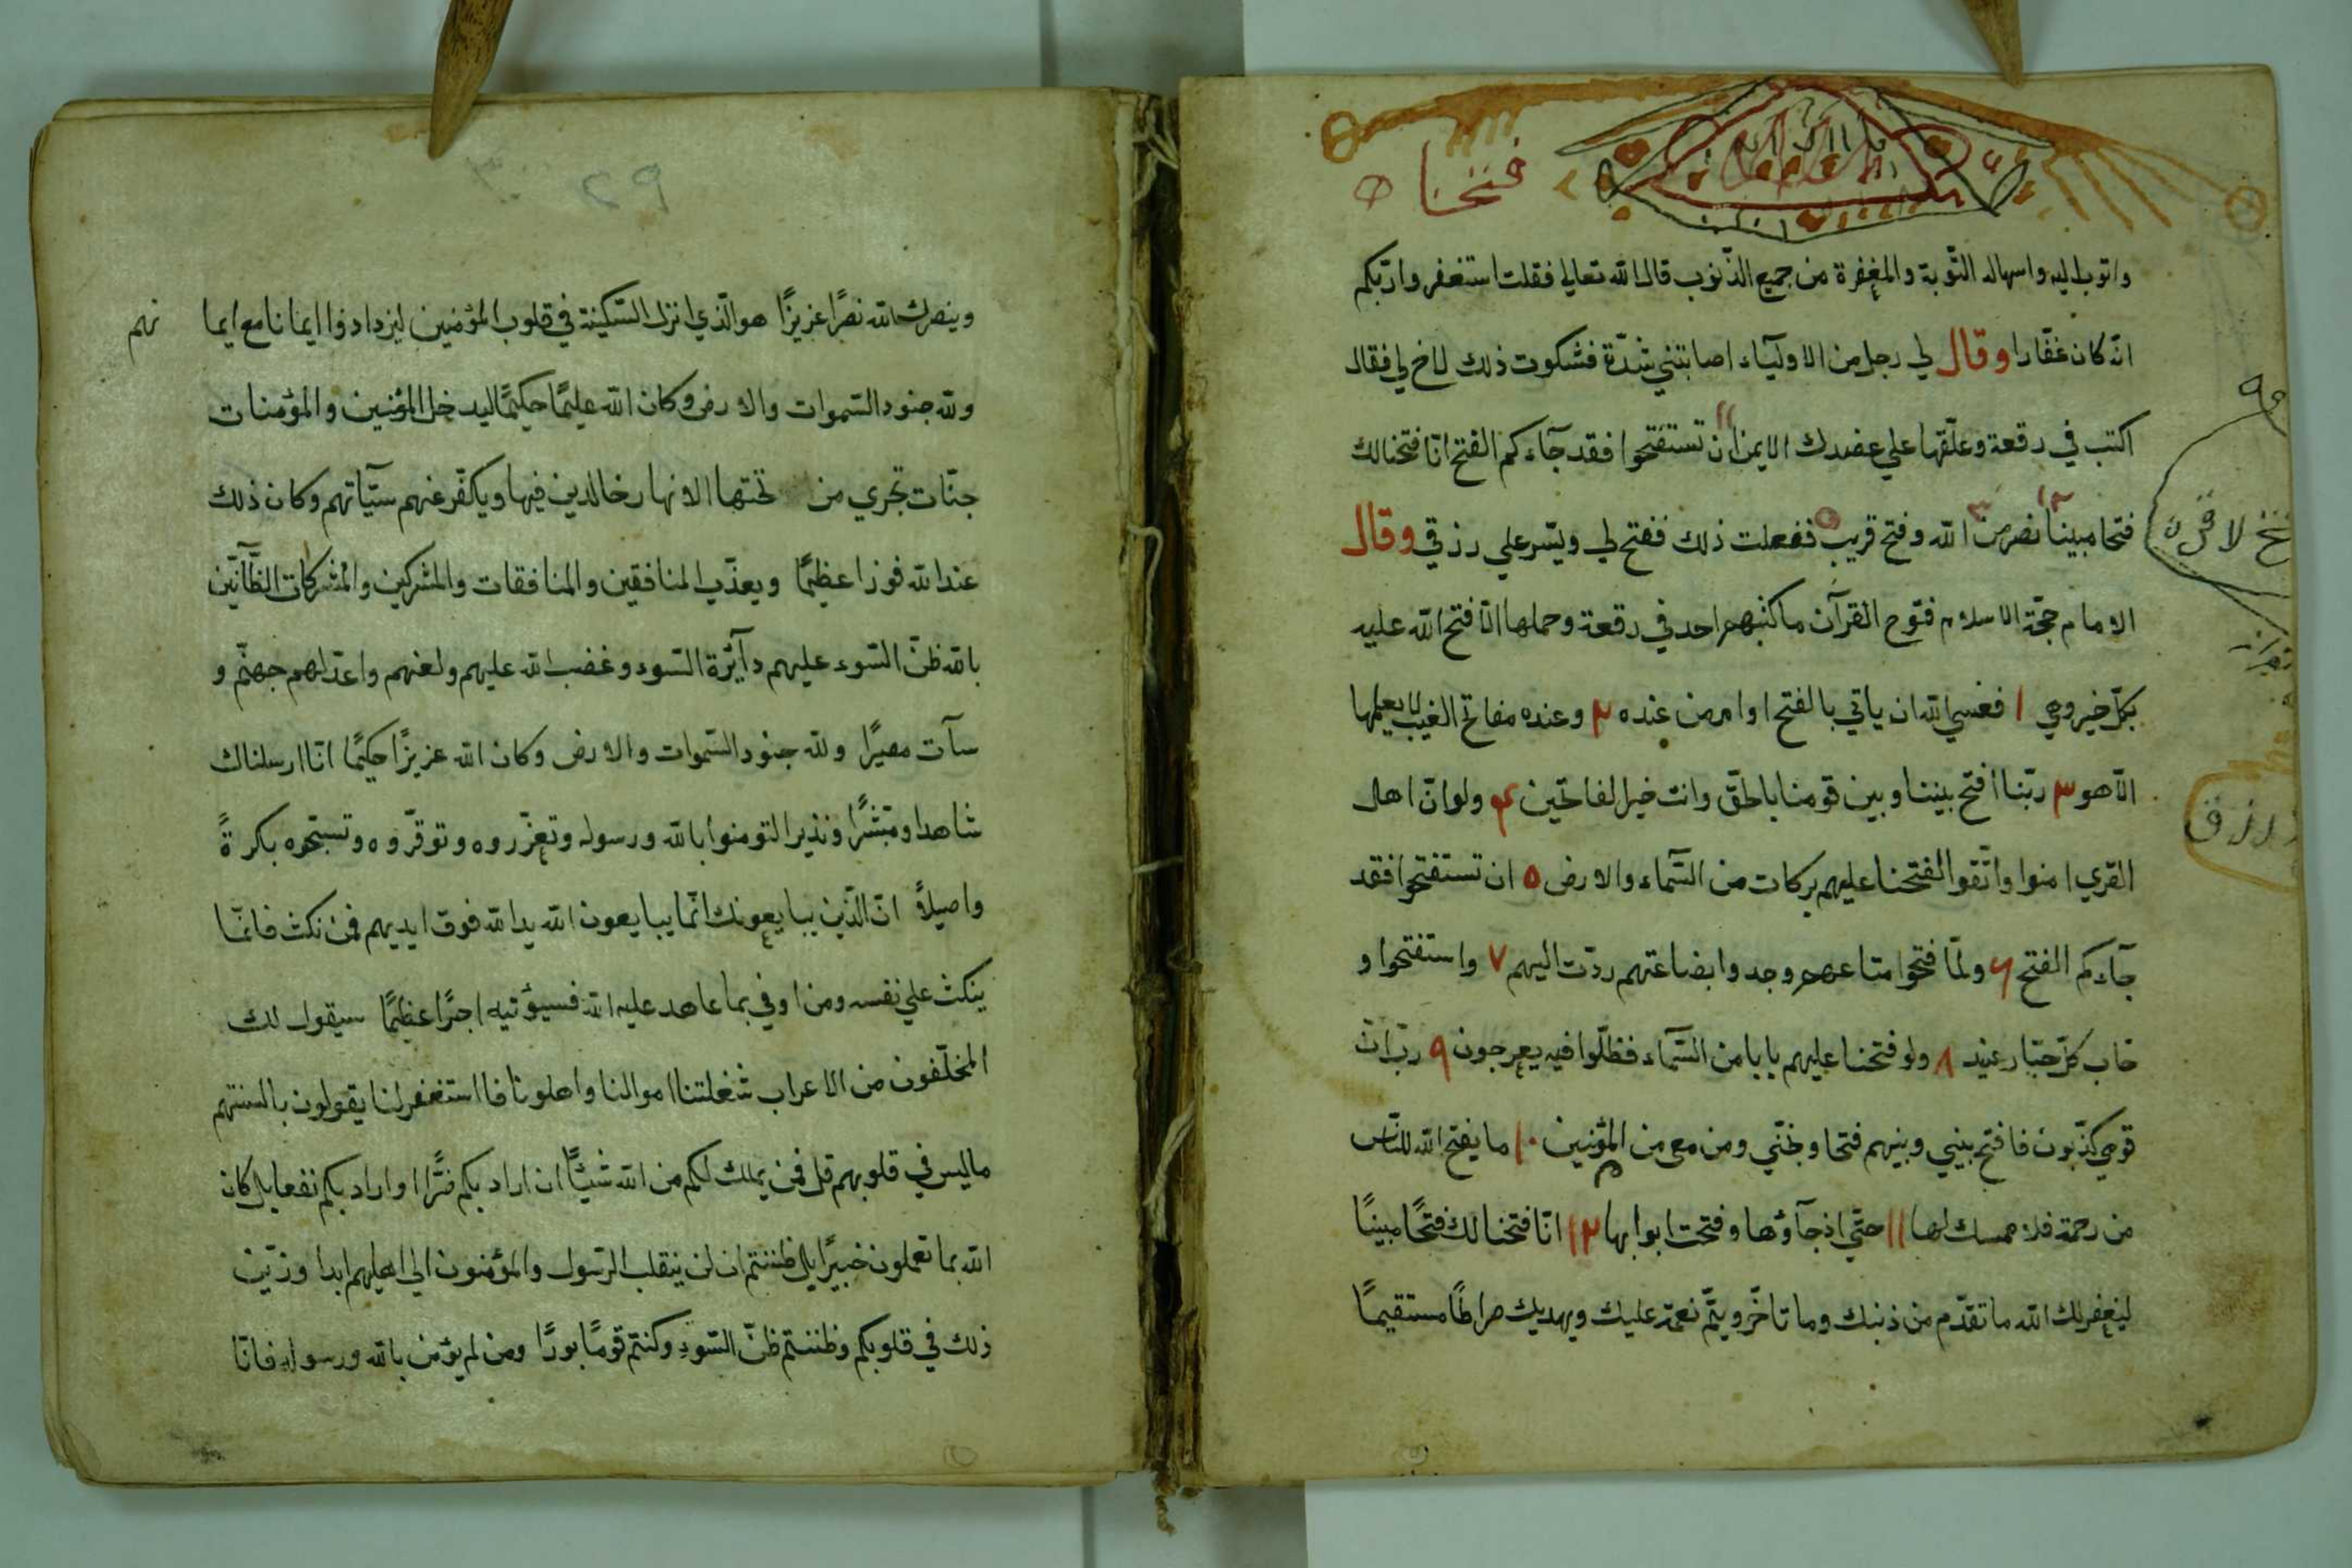 فتحنا
واتوب اليه واسهاله التّوبة والمغفرة من جميع الذّنوب قال الله تعالي فقلت استغفروا ربّكم
انّه كان غفّارا وقال لي رجل من الاوليآء اصابتني شدّة فشكوت ذلك لاخ لي فقال
اكتب في رقعة وعلّقها علي عضدك الايمن ان تستفتحوا فقد جآءكم الفتح انّا فتحنا لك
فتحا مبينا نصر من الله وفتح قريب ففعلت ذلك ففتح لي ويسّر علي رزقي وقال
الامام حجّة الاسلام فتوح القرآن ما كتبهم احد في رقعة وحملها الّا فتح الله عليه
بكلّ خير وهي ١ فعسي الله ان ياتي بالفتح او امر من عنده ٢ وعنده مفاتح الغيب لا يعلمها
الّا هو ٣ ربّنا افتح بيننا وبين قومنا بالحقّ وانت خير الفاتحين ٤ ولو انّ اهل
القري امنوا واتّقوا لفتحنا عليهم بركات من السّمآء والارض ٥ ان تستفتحوا فقد
جآءكم الفتح ٦ ولمّا فتحوا متاعهم وجدوا بضاعتهم ردّت اليهم ٧ واستفتحوا و
خاب كلّ جبّار عنيد ٨ ولو فتحنا عليهم بابا من السّمآء فظلّوا فيه يعرجون ٩ ربّ انّ
قومي كذّبون فافتح بيني وبينهم فتحا ونجّني ومن معي من المؤمنين ١٠ ما يفتح الله للنّاس
من رحمة فلا ممسك لها ١١ حتّي اذ جآؤها وفتحت ابوابها ١٢ انّا فتحنا لك فتحًا مبينًا
ليغفر لك الله ما تقدّم من ذنبك وما تاخّر ويتمّ نعمته عليك ويهديك صراطًا مستقيمًا
رزق
وينصرك الله نصرًا عزيزًا هو الّذي انزل السّكينة في قلوب المؤمنين ليزدادوا ايمانا مع ايما نهم
ولله جنود السّموات والارض وكان الله عليمًا حكيمًا ليدخل المؤمنين والمؤمنات
جنّات تجري من تحتها الانهار خالدين فيها ويكفّر عنهم سيّآتهم وكان ذلك
عند الله فوزا عظيمًا ويعذّب المنافقين والمنافقات والمشركين والمشركات الظّآنّين
بالله ظنّ السّوء عليهم دآئرة السّوء وغضب الله عليهم ولعنهم واعدّ لهم جهنّم و
سآت مصيرًا ولله جنود السّموات والارض وكان الله عزيزًا حكيمًا انّا ارسلناك
شاهدا ومبشّرًا ونذيرا لتومنوا بالله ورسوله وتعزّروه وتوقّروه وتسبّحوه بكرةً
واصيلاً انّ الّذين يبايعونك انّما يبايعون الله يد الله فوق ايديهم فمن نكث فانّما
ينكث علي نفسه ومن اوفي بما عاهد عليه الله فسيؤتيه اجرًا عظيمًا سيقول لك
المخلّفون من الاعراب شغلتنا اموالنا واهلونا فااستغفر لنا يقولون بالسنتهم
ما ليس في قلوبهم قل فمن يملك لكم من الله شيئًا ان اراد بكم ضرًّا او اراد بكم نفعا بل كان
الله بما تعملون خبيرًا بل ظننتم ان لن ينقلب الرّسول والمؤمنون الي اهليهم ابدا وزيّن
ذلك في قلوبكم وظننتم ظنّ السّوء وكنتم قومًا بورًا ومن لم يؤمن بالله ورسوله فانّا